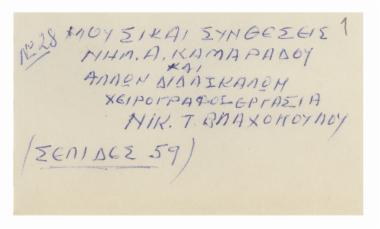 1
Νο 28
ΜΟΥΣΙΚΑΙ ΣΥΝΘΕΣΕΙΣ
ΝΗΛ. Α. ΚΑΜΑΡΑΔΟΥ
ΚΑΙ
ΑΛΛΩΝ ΔΙΔΑΣΚΑΛΩΝ
ΧΕΙΡΟΓΡΑΦΟΣ ΕΡΓΑΣΙΑ
ΝΙΚ. Τ. ΒΛΑΧΟΠΟΥΛΟΥ
(ΣΕΛΙΔΕΣ 59)